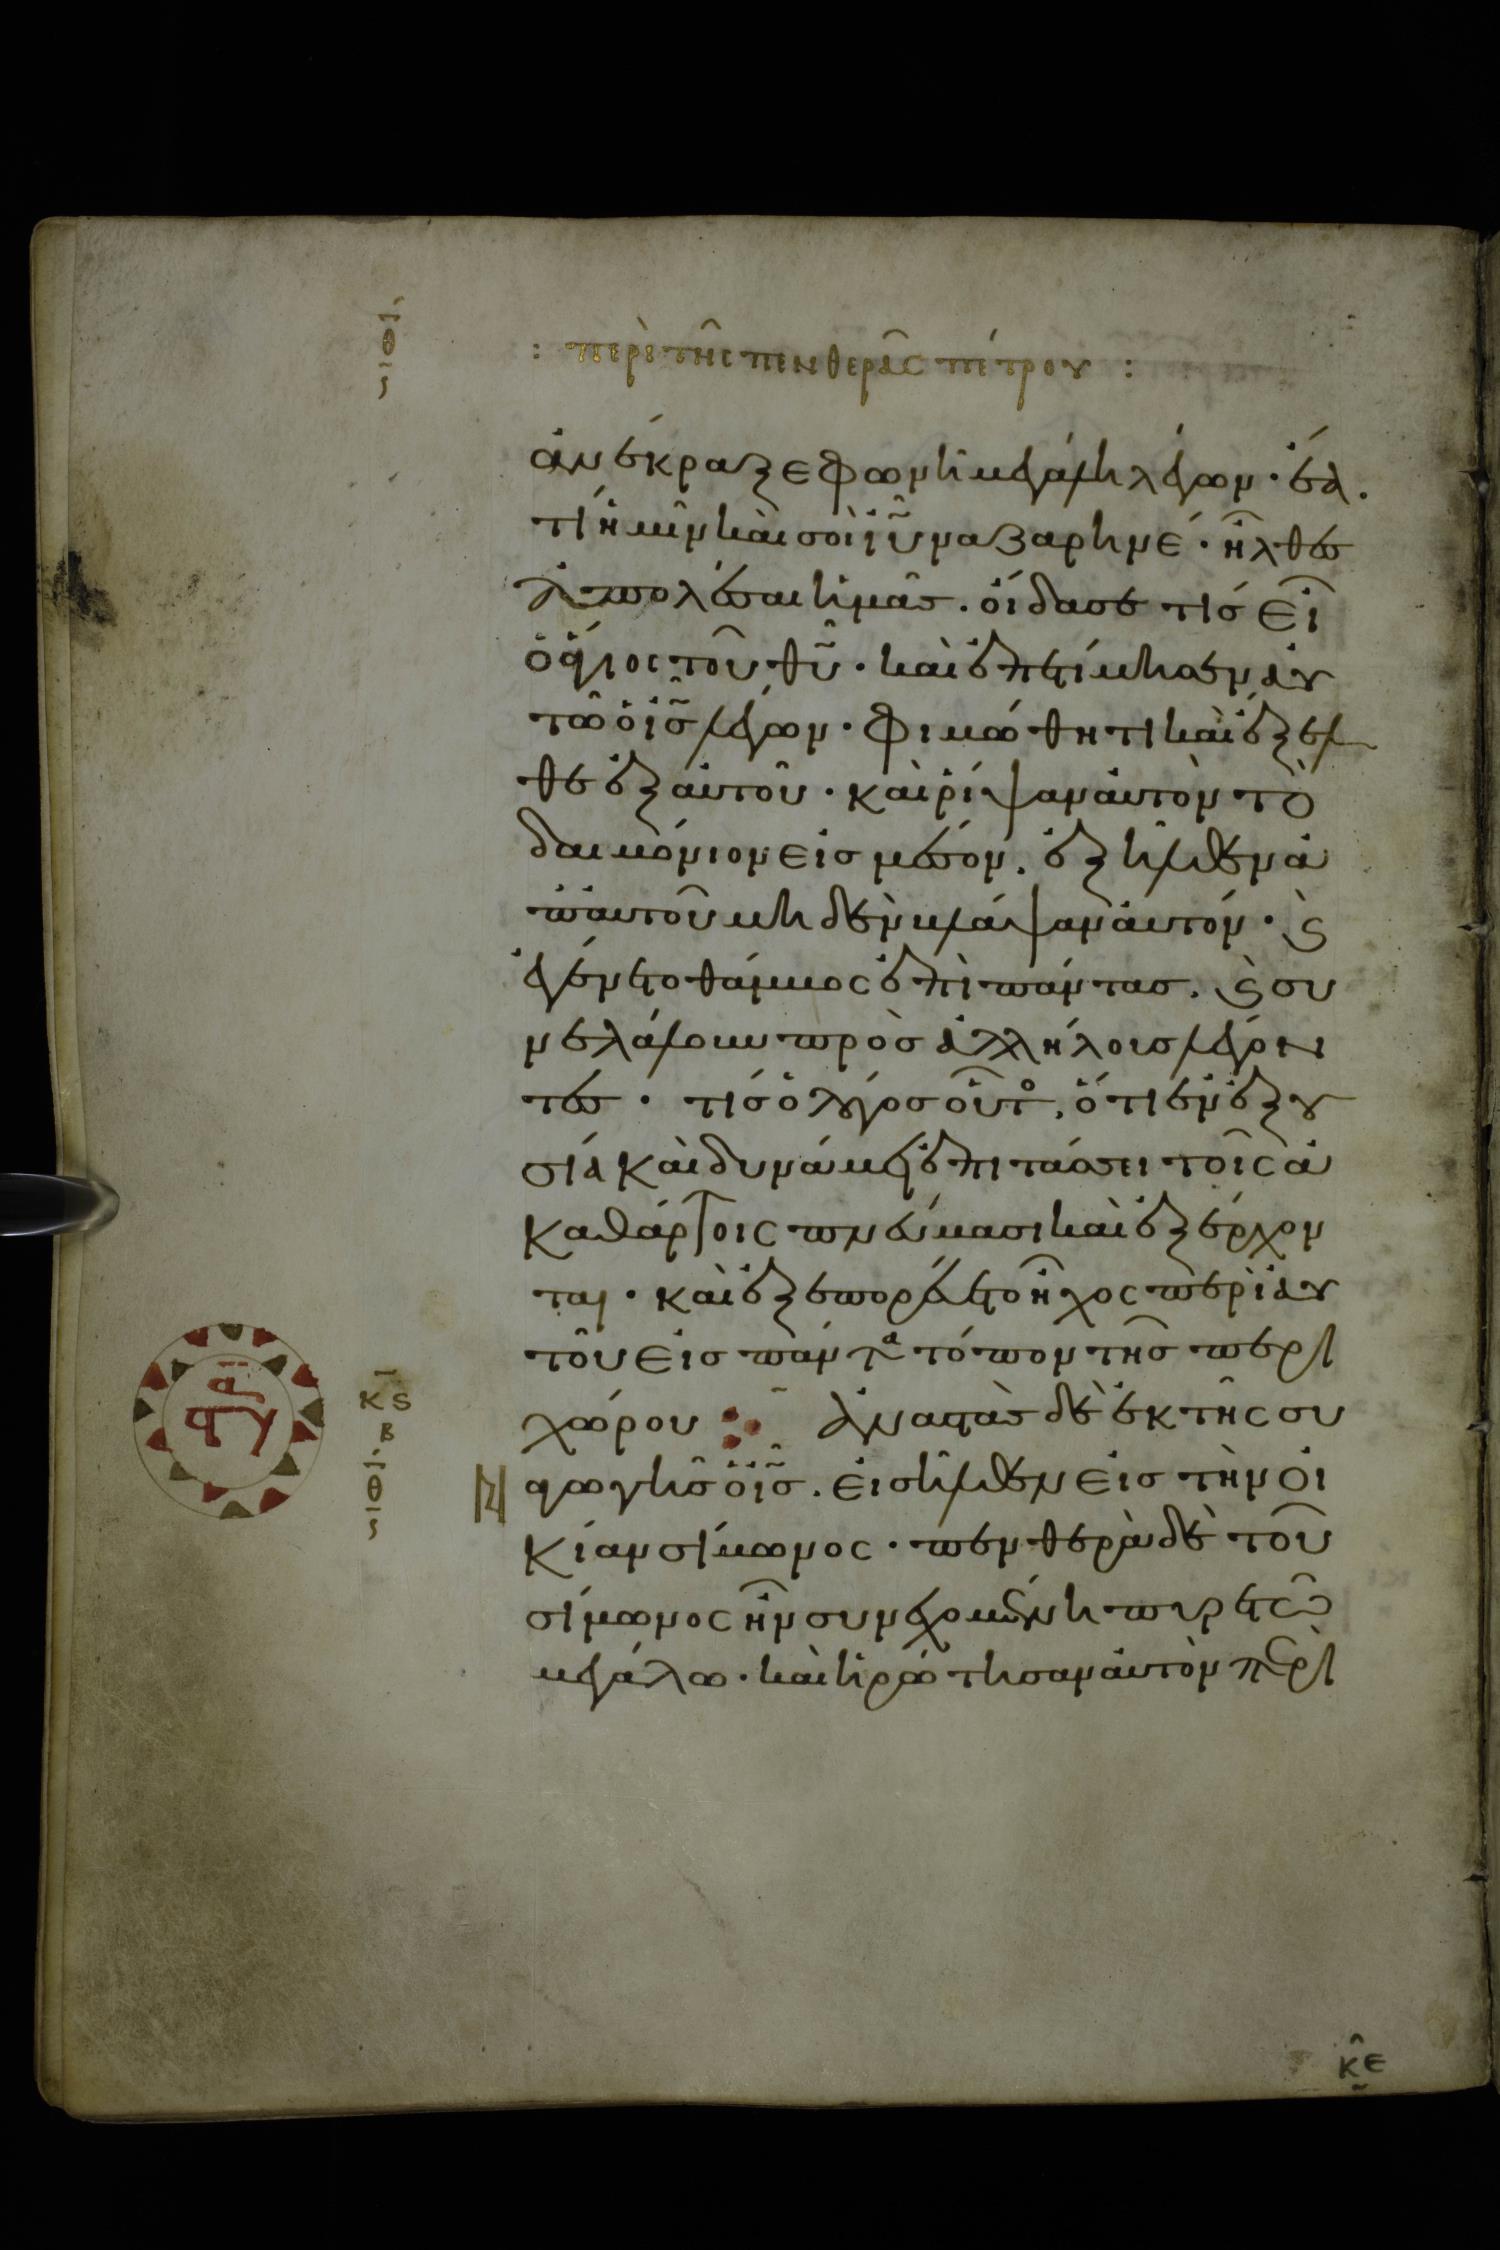 : περὶ τῆς πενθερᾶς πέτρου :
ἀνέκραξε φωνῆ μεγάλη λέγων · ἔα.
τί ἡμῖν καὶ σοὶ ἰῦ ναζαρηνέ · ἦλθες
ἀπολέσαι ἡμᾶς. οἶδα σε τίς εἶ
ὁ ἅγιος τοῦ θῦ · καὶ ἐπετίμησεν αὐ
τῶ ὁ ἰς λέγων · φιμώθητι καὶ ἔξελ
θε ἐξ αὐτοῦ · καὶ ῥίψαν αὐτὸν τὸ
δαιμόνιον εἰς μέσον. ἐξῆλθεν ἀ
π' αὐτοῦ μηδὲν βλάψαν αὐτόν · ϗ
ἐγένετο θάμβος ἐπὶ πάντας. ϗ συ
νελάλουν πρὸς ἀλλήλους λέγον
τες · τίς ὁ λόγος οὗτος, ὅτι ἐν ἐξου
σία καὶ δυνάμει ἐπιτάσσει τοῖς ἀ
καθάρτοις πνεύμασι καὶ ἐξέρχον
ται · καὶ ἐξεπορεύετο ἦχος περὶ αὐ
τοῦ εἰς πάντα τόπον τῆς περι
χώρου ⁘ ἀναστὰς δὲ ἐκ τῆς συ
ναγωγῆς ὁ ἰς. εἰσῆλθεν εἰς τὴν οἰ
κίαν σίμωνος · πενθερὰ δὲ τοῦ
σίμωνος ἦν συνεχομένη πυρετῶ
μεγάλω · καὶ ἠρώτησαν αὐτὸν περὶ
κς
β
θ
κε